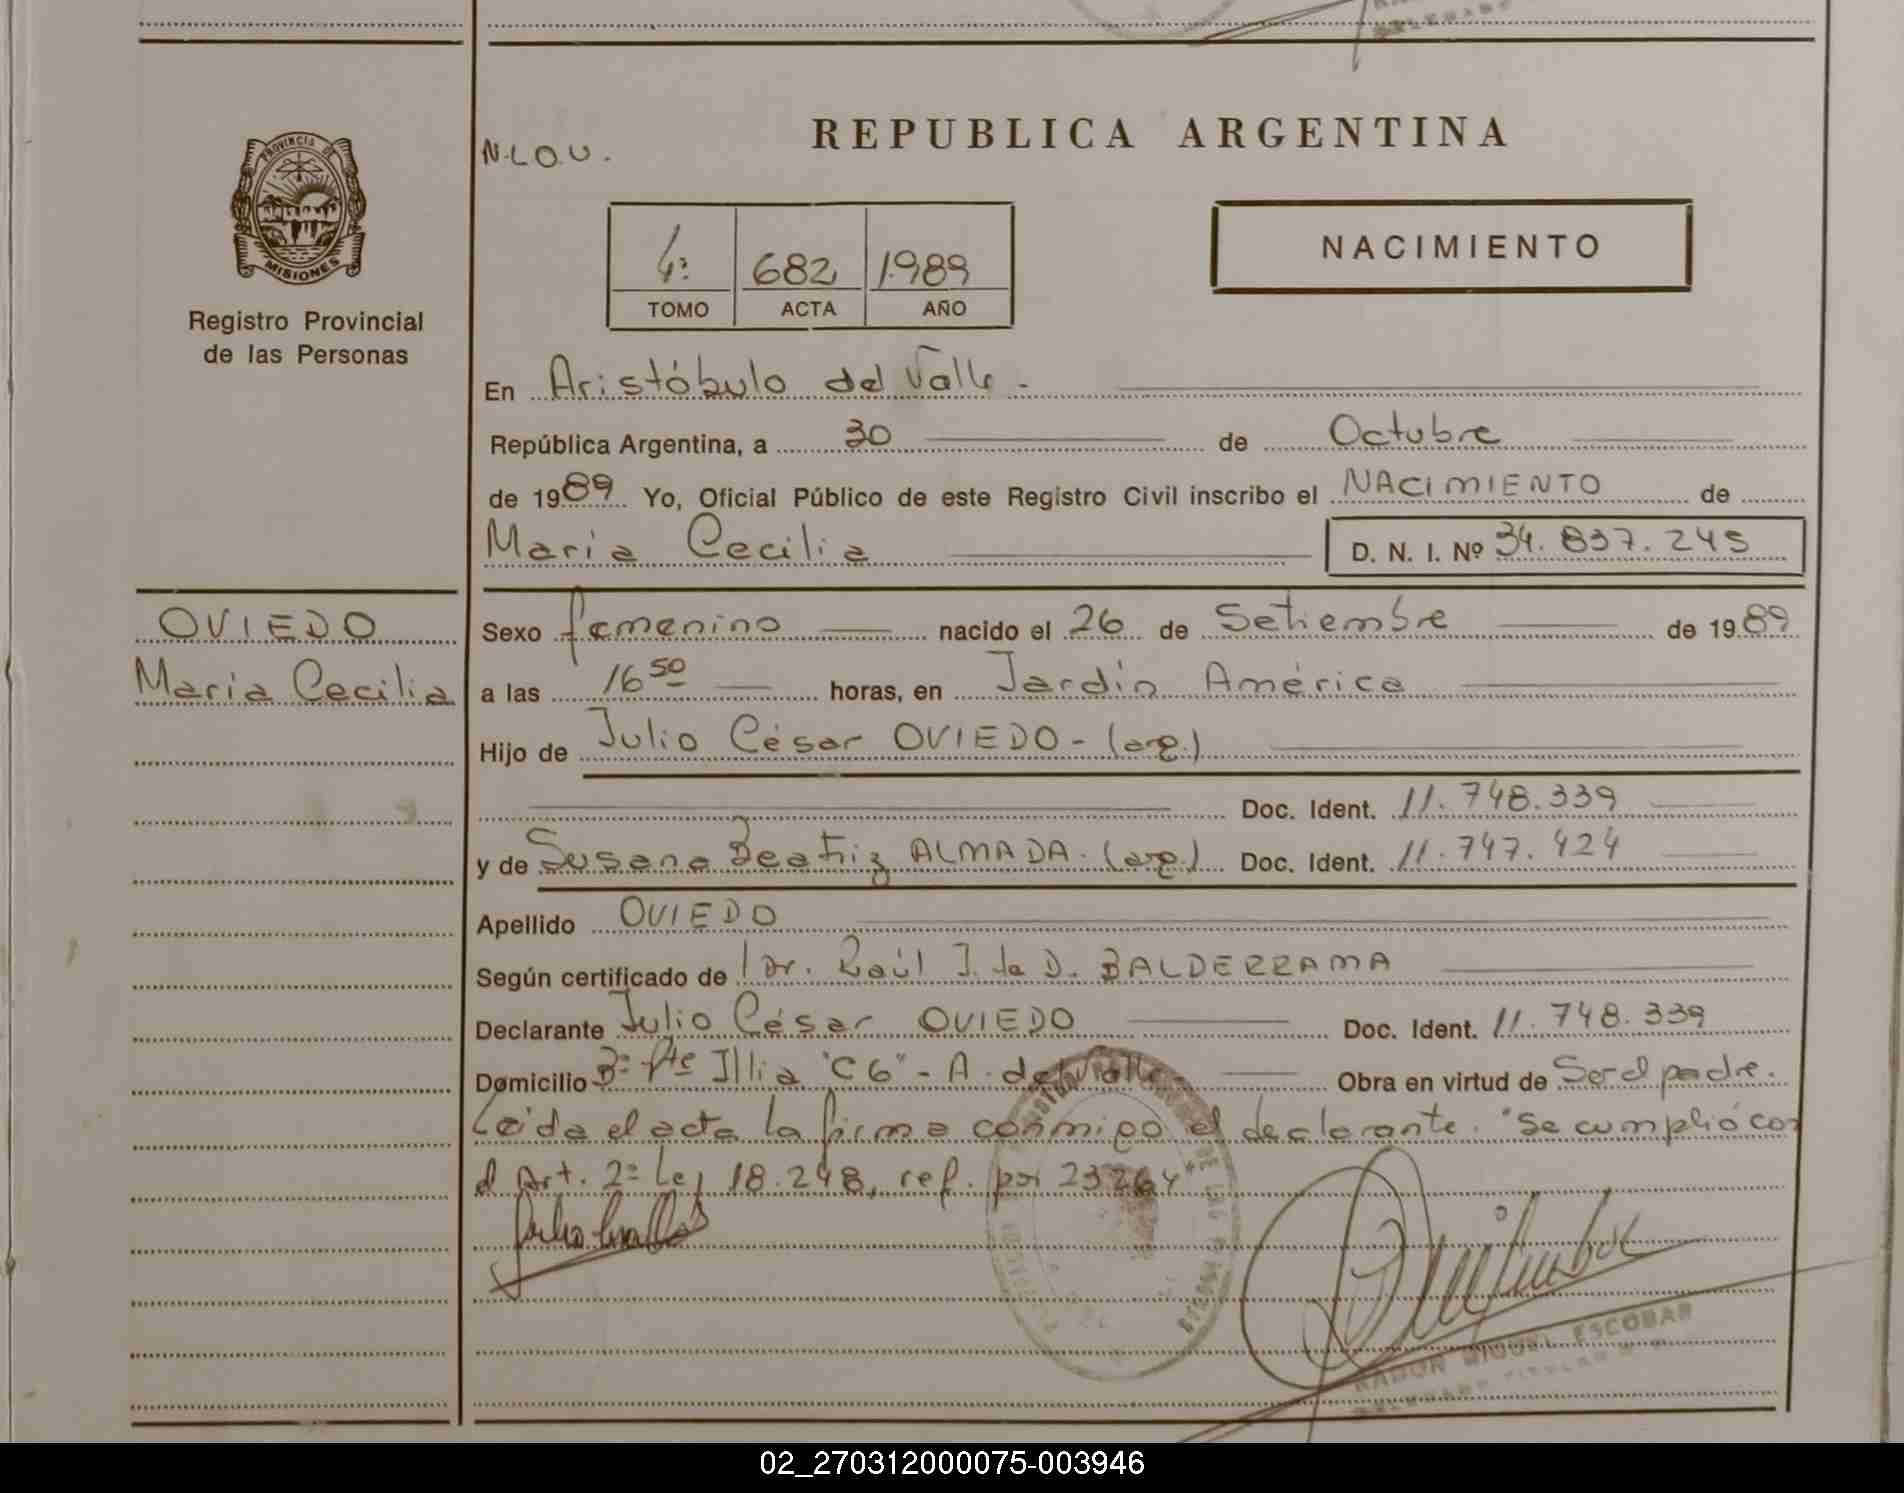 PROVINCIA DE
MISIONES
Registro Provincial
de las Personas
OVIEDO
Maria Cecilia
REPUBLICA ARGENTINA
N.L.O.U.
682 1989
TOMO ACTA AÑO
NACIMIENTO
En Aristóbulo del Valle.
República Argentina, a 30 de Octubre
de 1989 Yo, Oficial Público de este Registro Civil inscribo el NACIMIENTO de
Maria Cecilia D. N. I. Nº 34.837.245
Sexo femenino nacido el 26 de Setiembre de 1989
a las 16 50 horas, en Jardín América
Hijo de Julio César OVIEDO - (arg.)
Doc. Ident. 11.748.339
y de Susana Beatriz ALMADA. (arg.) Doc. Ident. 11.747.424
Apellido OVIEDO
Según certificado de Dr. Raúl J. de D. BALDERRAMA
Declarante Julio César OVIEDO Doc. Ident. 11.748.339
Domicilio Bº Pte Illia "C6" - A. del Valle Obra en virtud de Ser el padre.
Leída el acta la firma conmigo el declarante. "Se cumplió con
el Art. 2º Ley 18.248, ref. por 23264"
RAMON MIGUEL ESCOBAR
02_270312000075-003946